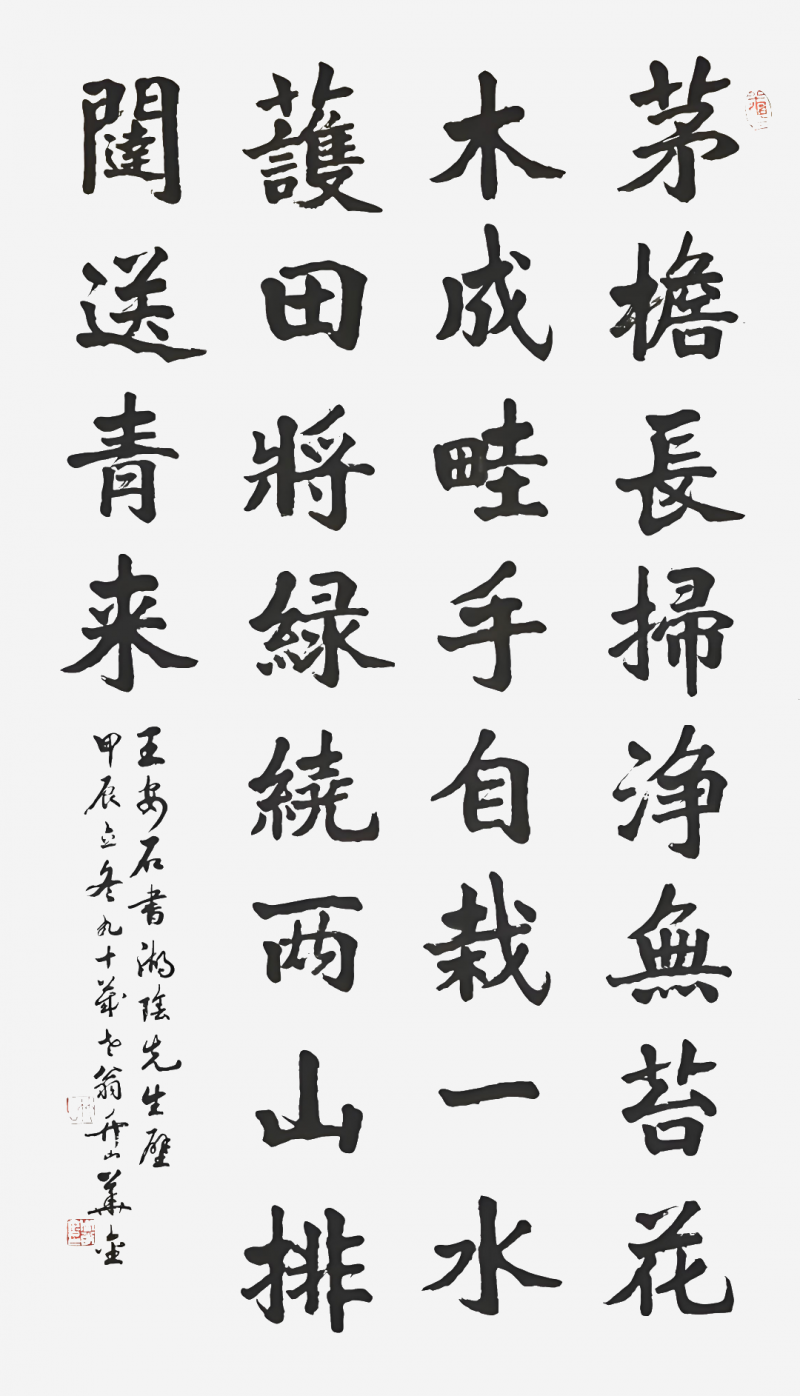 茅檐長掃浄無苔花
木成畦手自栽一水
護田將緑繞两山排
闥送青来
王安石書湖陰先生壁
甲辰立冬九十歲老翁華金